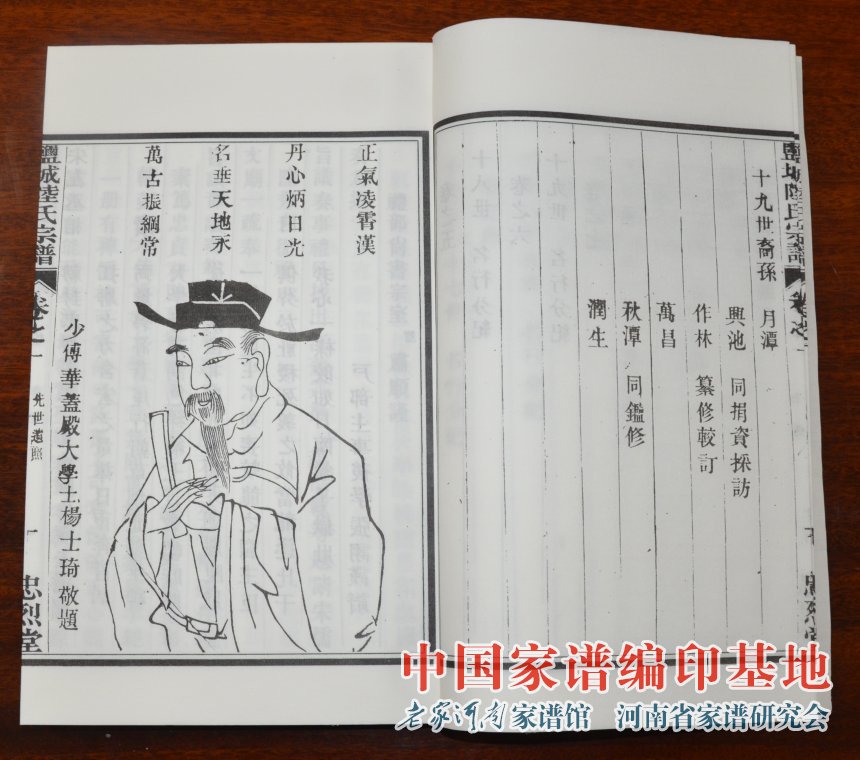 鹽城陸氏宗譜
十九世裔孫 月潭
興池 同捐資採訪
作林 纂修較訂
萬昌
秋潭 同鑑修
潤生
正氣凌霄漢
丹心炳日光
名垂天地永
萬古振綱常
少傅華蓋殿大學士楊士琦敬題
鹽城陸氏宗譜
卷之一
先世遺照
忠烈堂
中国家谱编印基地
老家河南家谱馆 河南省家谱研究会